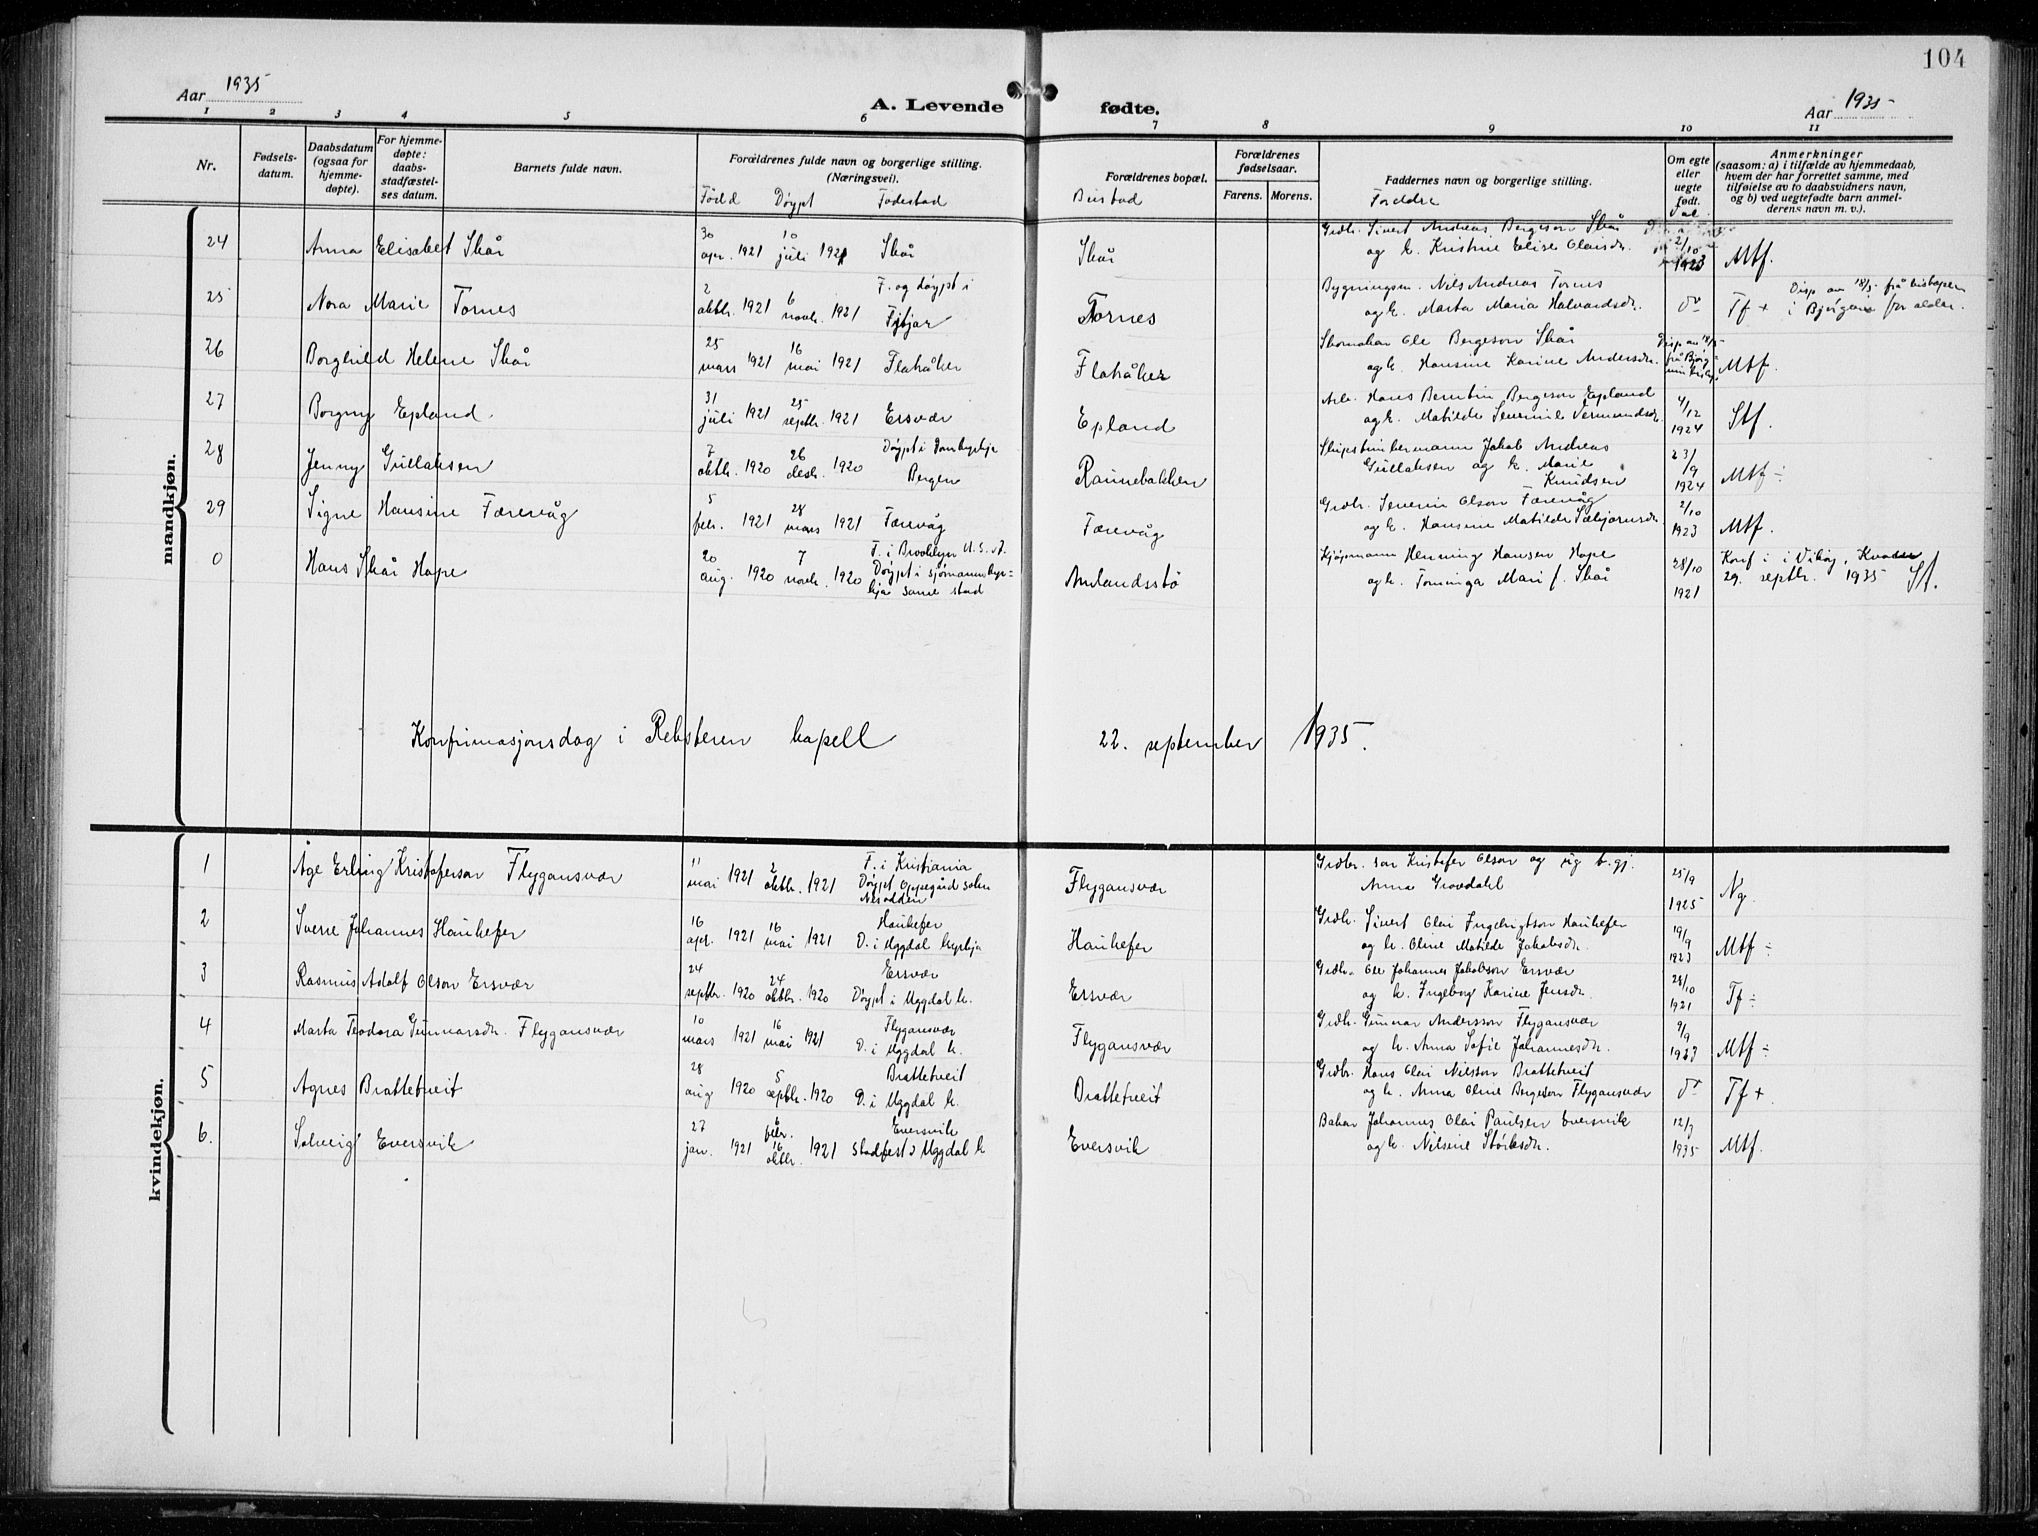 104
Aar 1935
A. Levende fødte.
Aar 1935
1 2 3 4 5 6 7 8 9 10 11
Nr.
Fødsels-
datum.
Daabsdatum
(ogsaa for
hjemme-
døpte).
For hjemme-
døpte:
daabs-
stadfæstel-
ses datum.
Barnets fulde navn.
Forældrenes fulde navn og borgerlige stilling.
(Næringsvei).
Född Döypt Födestad
Forældrenes bopæl.
Bustad
Forældrenes
fødselsaar.
Farens. Morens.
Faddernes navn og borgerlige stilling.
Foreldre
Om egte
eller
uegte
født.
Anmerkninger
(saasom: a) i tilfælde av hjemmedaab,
hvem der har forrettet samme, med
tilføielse av to daabsvidners navn,
og b) ved uegtefødte barn anmel-
derens navn m. v.).
mandkjøn.
24 Anna Elisabet Skår 30 apr. 1921 10 juli 1921 Skår Skår
Grdbr. Sivert Andreas Bergeson Skår
og k. Kristine Elise Olaisdr. 2/10 1923 Mtf.
25 Nora Marie Tornes 2 oktbr. 1921 6 novbr. 1921 F. og döypt i Fitjar Tornes
Bygningsm. Nils Andreas Tornes
og k. Marta Maria Halvardsdr. do Tf + Disp. av 18/5 frå biskopen
i Bjørgvin for alder.
26 Borghild Helene Skår 25 mars 1921 16 mai 1921 Flatråker Flatråker
Skomakar Ole Bergeson Skår
og k. Hansine Karine Andersdr. Disp av 18/5 frå Bjørg- Mtf.
27 Borgny Epland 31 juli 1921 25 septbr. 1921 Ersvær Epland
Arb. Hans Berntin Bergeson Epland
og k. Matilde Severine Vermundsdr. 4/12 1924 Stf.
28 Jenny Gullaksen 7 oktbr. 1920 26 desbr. 1920 Döypt i Domkyrkja Bergen Raunebakken
Skipstimbermann Jakob Andreas
Gullaksen og k. Marie
Knudsen 23/9 1924 Mtf ÷
29 Signe Hansine Færevåg 5 febr. 1921 28 mars 1921 Færevåg Færevåg
Grdbr. Severin Olson Færevåg
og k. Hansine Matilde Sæbjørnsdr. 2/10 1923 Mtf.
0 Hans Skår Hope 20 aug. 1920 7 novbr. 1920 F. i Brooklyn U.S.A.
Döypt i sjømannskyr-
kja same stad Amlandsstø
Kjøpmann Henning Hansen Hope
og k. Tominga Mari f. Skår 28/10 1921 Konf. i Vikøy, Kvam
29. septbr. 1935 Sf.
Konfirmasjonsdag i Reksteren kapell 22. september 1935.
kvindekjøn.
1 Åge Erling Kristoferson Flygansvær 11 mai 1921 2 oktbr. 1921 F. i Kristiania
Döypt Oppegård sokn
Nesodden Flygansvær
Grdbr. son Kristofer Olson og ug b. gj.
Anna Grovdahl 25/9 1925 Ng.
2 Sverre Johannes Haukefer 16 apr. 1921 16 mai 1921 Haukefer
D. i Uggdal kyrkja Haukefer
Grdbr. Sivert Olai Ingebrigtson Haukefer
og k. Oline Matilde Jakobsdr. 19/9 1923 Mtf ÷
3 Rasmus Adolf Olson Ersvær 24 septbr. 1920 24 oktbr. 1920 Ersvær
Döypt i Uggdal k. Ersvær
Grdbr. Ole Johannes Jakobson Ersvær
og k. Ingeborg Karine Jensdr. 28/10 1921 Tf ÷
4 Marta Teodora Gunnarsdr. Flygansvær 10 mars 1921 16 mai 1921 Flygansvær
D. i Uggdal k. Flygansvær
Grdbr. Gunnar Andersson Flygansvær
og k. Anna Sofie Johannesdr. 9/9 1923 Mtf ÷
5 Agnes Brattetveit 28 aug 1920 5 septbr. 1920 Brattetveit
D. i Uggdal k. Brattetveit
Grdbr. Hans Olai Nilsson Brattetveit
og k. Anna Oline Bergeson Flygansvær do Tf +
6. Solveig Eversvik 27 jan. 1921 6 febr. 16 oktbr. 1921 Eversvik
Stadfest i Uggdal k Eversvik
Bakar Johannes Olai Paulsen Eversvik
og k. Nilsine Størksdr. 12/9 1935 Mtf.